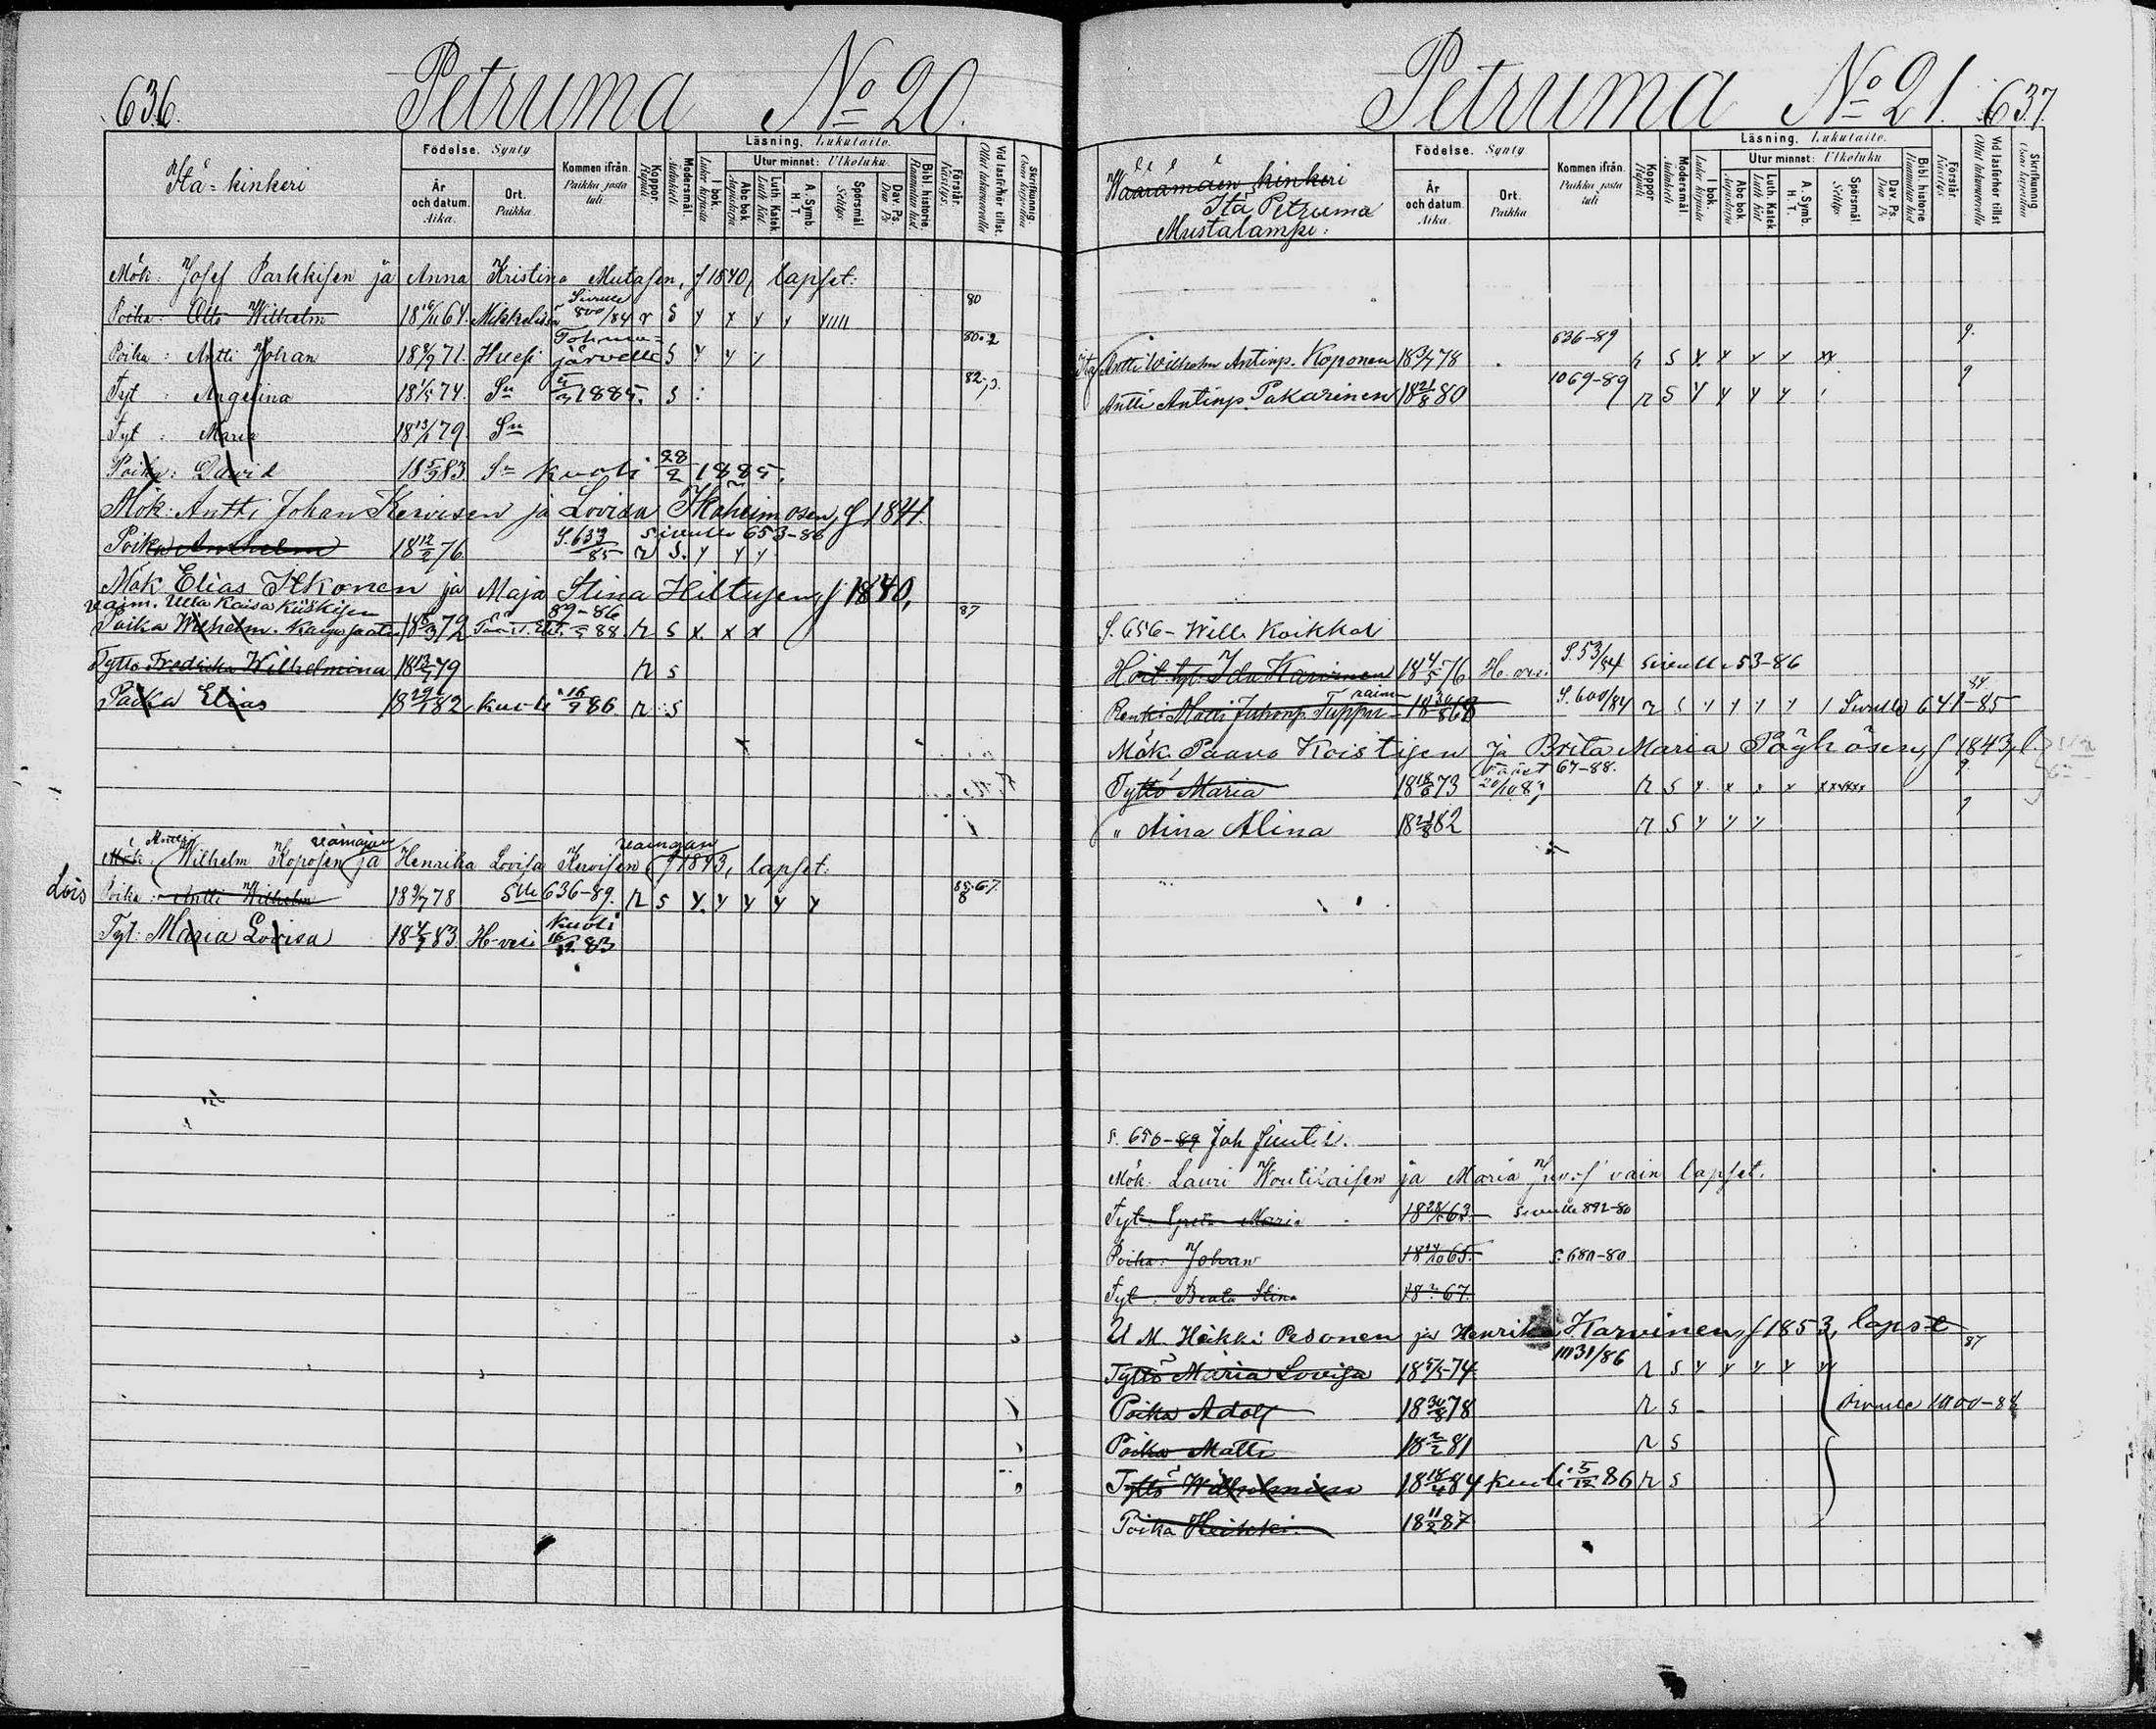 636. Petruma No 20.
Itä-kinkeri
Födelse. Synty
År och datum. Aika.
Ort. Paikka
Kommen ifrån. Paikka josta tuli.
Koppor. Rupuli
Modersmål. Äidinkieli
Läsning. Lukutaito.
I bok. Lukee kirjasta
Utur minnet: Ulkoluku
Abc bok. Aapiskirja
Luth. Katek. Luth. Kat.
A. Symb. H. T.
Spörsmål Selitys
Dav. Ps. Dav. Ps
Bibl. historie. Raamatun hist.
Förstår. Käsitys.
Vid läsförhör tillst. Ollut lukuvuorolla
Skrifkunnig. Osaa kirjoittaa
Mök: Josef Parkkisen ja Anna Kristina Mutasen, f 1840, lapset:
Poika: Otto Wilhelm 18 16/11 64. Mikkelissä Sivulle 800/84 r S 80
Poika: Antti Johan 18 8/9 71. Tohmajärvelle S 80.2
Tyt: Angelina 18 1/5 74. Sn 1885. S 82
Tyt: Maria 18 13/1 79. Sn
Poika: David 18 5/9 83 Sn kuoli 28/2 1885.
Mök: Antti Johan Kervisen ja Lovisa f 1841.
Poika 18 12/2 76 S. 633/85 sivulle 653-86 r S.
Mök Elias Itkonen ja Maja Stina Hiltusen, f 1840,
vaim. Ulla Kaisa Kiiskisen 89-86 87
Poika Wilhelm. 72 88 r S x x x
Tyttö Fredrika Wilhelmina 18 13/7 79 r S
Poika Elias 18 29/1 82 kuoli 16/7 86 r S
Mök: Wilhelm Koposen ja Henrika Lovisa Kervisen f 1843, lapset:
Lois Poika: Antti Wilhelm 18 9/7 78 Slle 636-89. r S 85.6.7. 8
Tyt: Maria Lovisa 18 4/7 83 H-vesi kuoli 16/12 83
Petruma No 21. 637.
Waaramäen kinkeri
Itä Petruma
Mustalampi:
Födelse. Synty
År och datum. Aika.
Ort. Paikka
Kommen ifrån. Paikka josta tuli
Koppor. Rupuli
Modersmål. Äidinkieli
Läsning. Lukutaito.
I bok. Lukee kirjasta
Utur minnet: Ulkoluku
Abc bok. Aapiskirja
Luth. Katek. Luth. Kat
A. Symb. H. T.
Spörsmål. Selitys
Dav. Ps Dav. Ps
Bibl. historie Raamatun hist
Förstår. Käsitys
Vid läsförhör tillst Ollut lukuvuorolla
Skrifkunnig. Osaa kirjoittaa
Antti Wilhelm Antinp. Koponen 18 9/7 78 636-89 r S 9.
Antti Antinp. Pakarinen 18 21/8 80 1069-89 r S 9
S. 656- Wille Koikkal
Hoit. tyt. Ida Karvinen 18 4/5 76 S. 53/84 sivulle 53-86
Renki Matti Juhonp. Tuppu 18 30/8 68 S. 600/84 r S Sivulle 641-85 84
Mök. Paavo Koistisen ja Brita Maria Pöyhösen, f 1843, l.
Tyttö Maria 18 18/6 73 67-88. r S 9
" Anna Alina 18 21/8 82 r S 9
S. 656-89 Joh Juuti.
Mök. Lauri Woutilaisen ja Maria vain lapset.
Tyt. Greta Maria 18 63. sivulle 892-80
Poika: Johan 18 14/10 65. S. 680-80
Tyt: Beata Stina 18 67.
U M. Heikki Pesonen ja Henrika Karvinen, f 1853, lapset
Tyttö Maria Lovisa 18 5/5 74 m31/86 r S 87
Poika Adolf 18 30/8 78 r S sivulle 1000-88
Poika Matti 18 2/2 81 r S
Tyttö Wilhelmina 18 18/4 84 kuoli 5/12 86 r S
Poika Heikki. 18 11/2 87